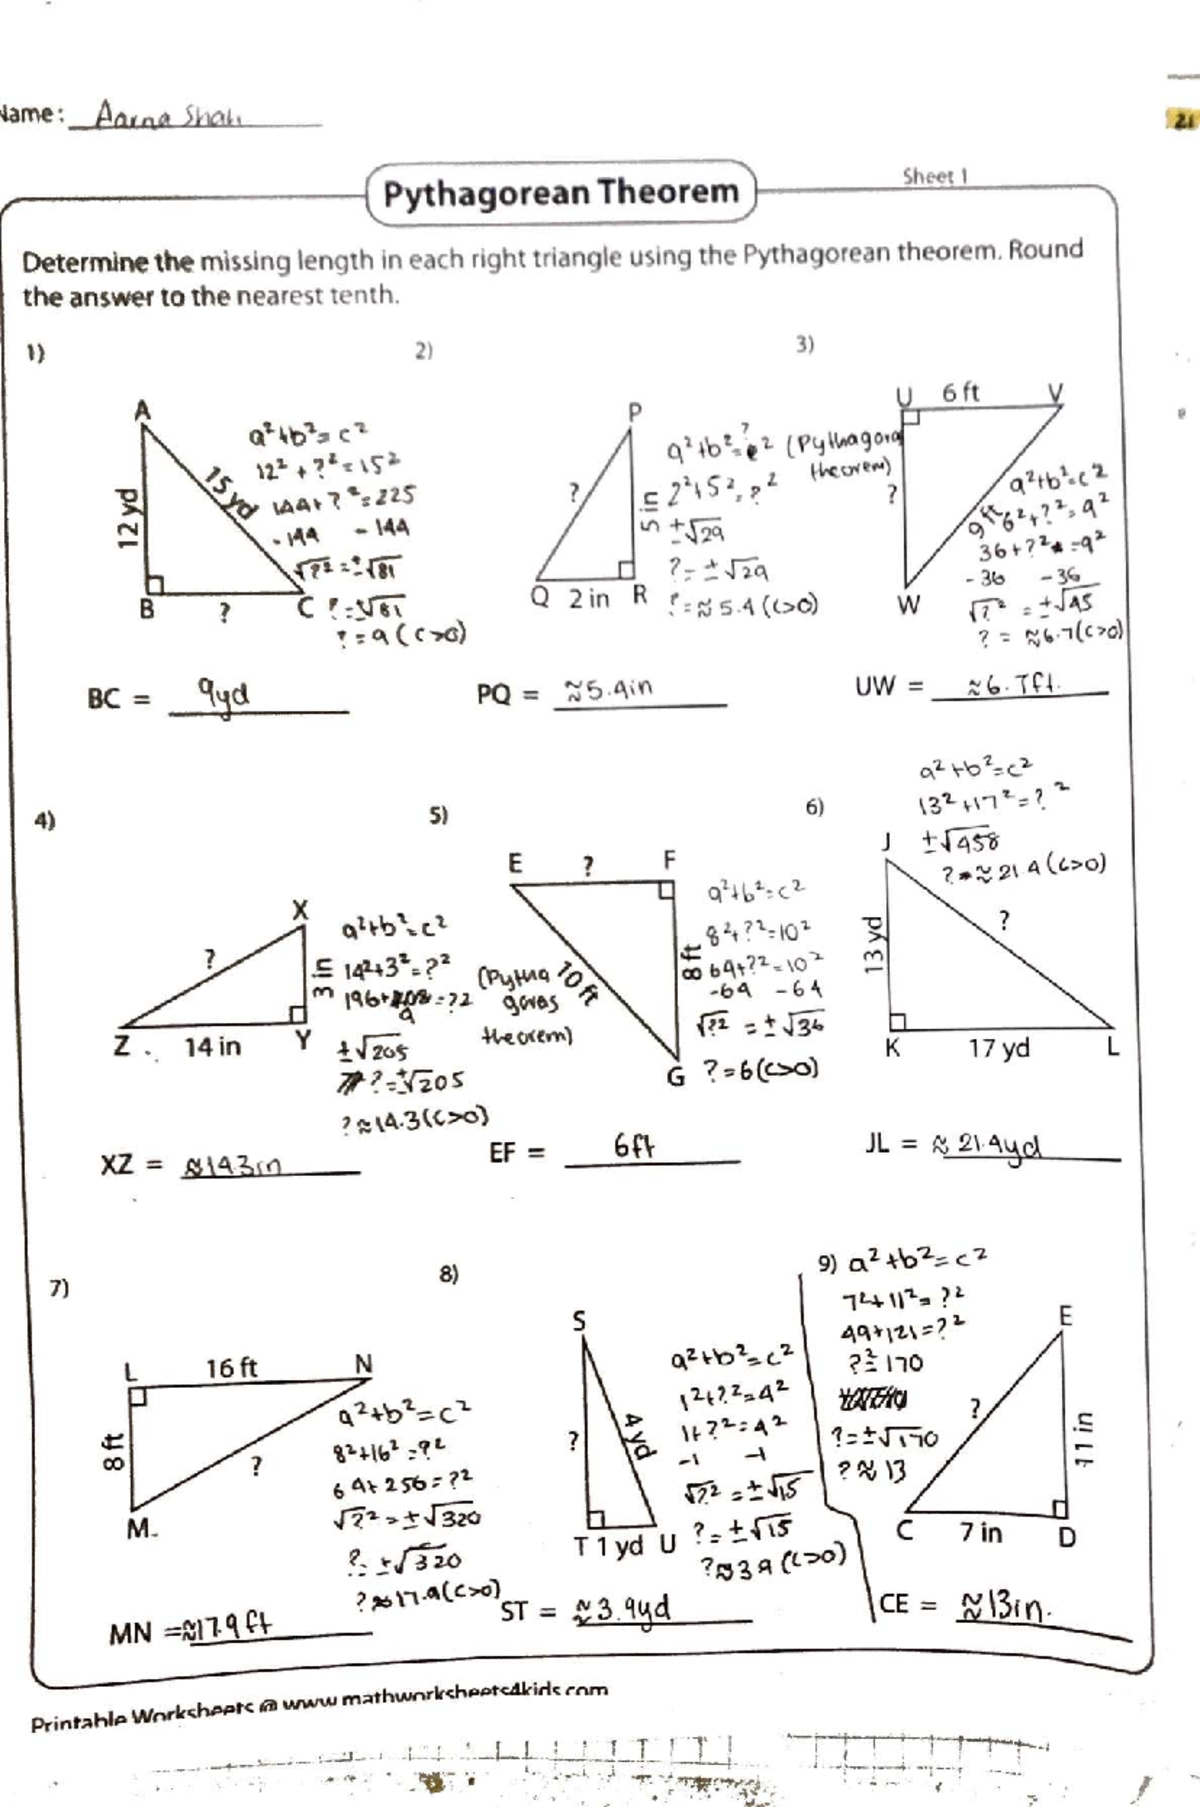 Name: Aarna Shah
21
Sheet 1
Pythagorean Theorem
Determine the missing length in each right triangle using the Pythagorean theorem. Round
the answer to the nearest tenth.
1)
A
12 yd
15 yd
B
?
C
a²+b²=c²
12²+?²=15²
144+?²=225
-144 -144
√?²=±√81
?=±√81
?=9(c>0)
BC = 9yd
2)
P
?
5 in
Q 2 in R
a²+b²=c² (Pythagoras
theorem)
2²+5²=?²
±√29
?=±√29
?=≈5.4(c>0)
PQ = ≈5.4in
3)
U 6 ft V
?
9 ft
W
a²+b²=c²
6²+?²=9²
36+?²=9²
-36 -36
√?²=±√45
?=≈6.7(c>0)
UW = ≈6.7ft.
4)
X
?
3 in
Z 14 in Y
a²+b²=c²
14²+3²=?²
196+9=?²
±√205
?=±√205
?≈14.3(c>0)
XZ = ≈14.3in
5)
E ? F
10 ft
8 ft
G
(Pytha
goras
theorem)
a²+b²=c²
8²+?²=10²
64+?²=10²
-64 -64
√?²=±√36
?=6(c>0)
EF = 6ft
6)
a²+b²=c²
13²+17²=?²
±√458
?≈21.4(c>0)
J
13 yd
?
K 17 yd L
JL = ≈21.4yd
7)
L 16 ft N
8 ft
?
M
a²+b²=c²
8²+16²=?²
64+256=?²
√?²=±√320
?=±√320
?≈17.9(c>0)
MN =≈17.9ft
8)
S
?
4 yd
T 1 yd U
a²+b²=c²
1²+?²=4²
1+?²=4²
-1 -1
√?²=±√15
?=±√15
?≈3.9(c>0)
ST = ≈3.9yd
9) a²+b²=c²
7²+11²=?²
49+121=?²
?²=170
?=±√170
?≈13
E
?
11 in
C 7 in D
CE = ≈13in.
Printable Worksheets @ www.mathworksheets4kids.com